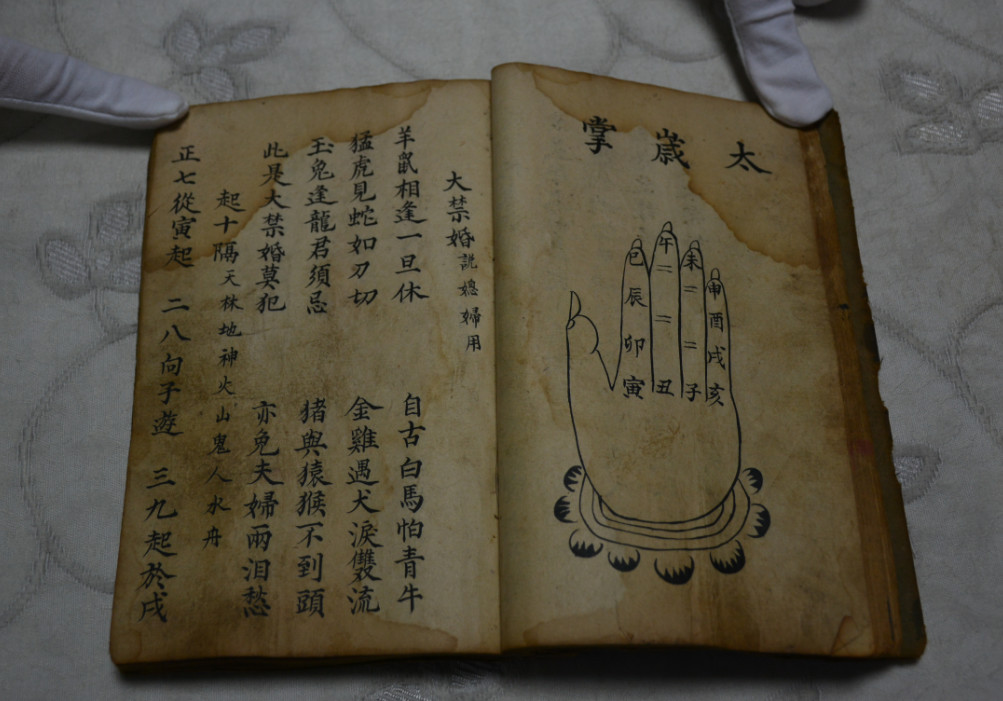 太歲掌
申酉戌亥
未二二子
午二二丑
巳辰卯寅
大禁婚說媳婦用
羊鼠相逢一旦休 自古白馬怕青牛
猛虎見蛇如刃切 金雞遇犬淚雙流
玉兔逢龍君須忌 猪與猿猴不到頭
此是大禁婚莫犯 亦免夫婦兩泪愁
起十隔天林地神火山鬼人水舟
正七從寅起 二八向子遊 三九起於戌